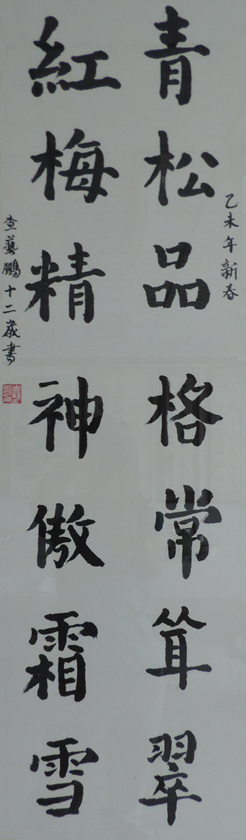 乙未年新春
青松品格常耸翠
紅梅精神傲霜雪
查藝鵬十二歲書